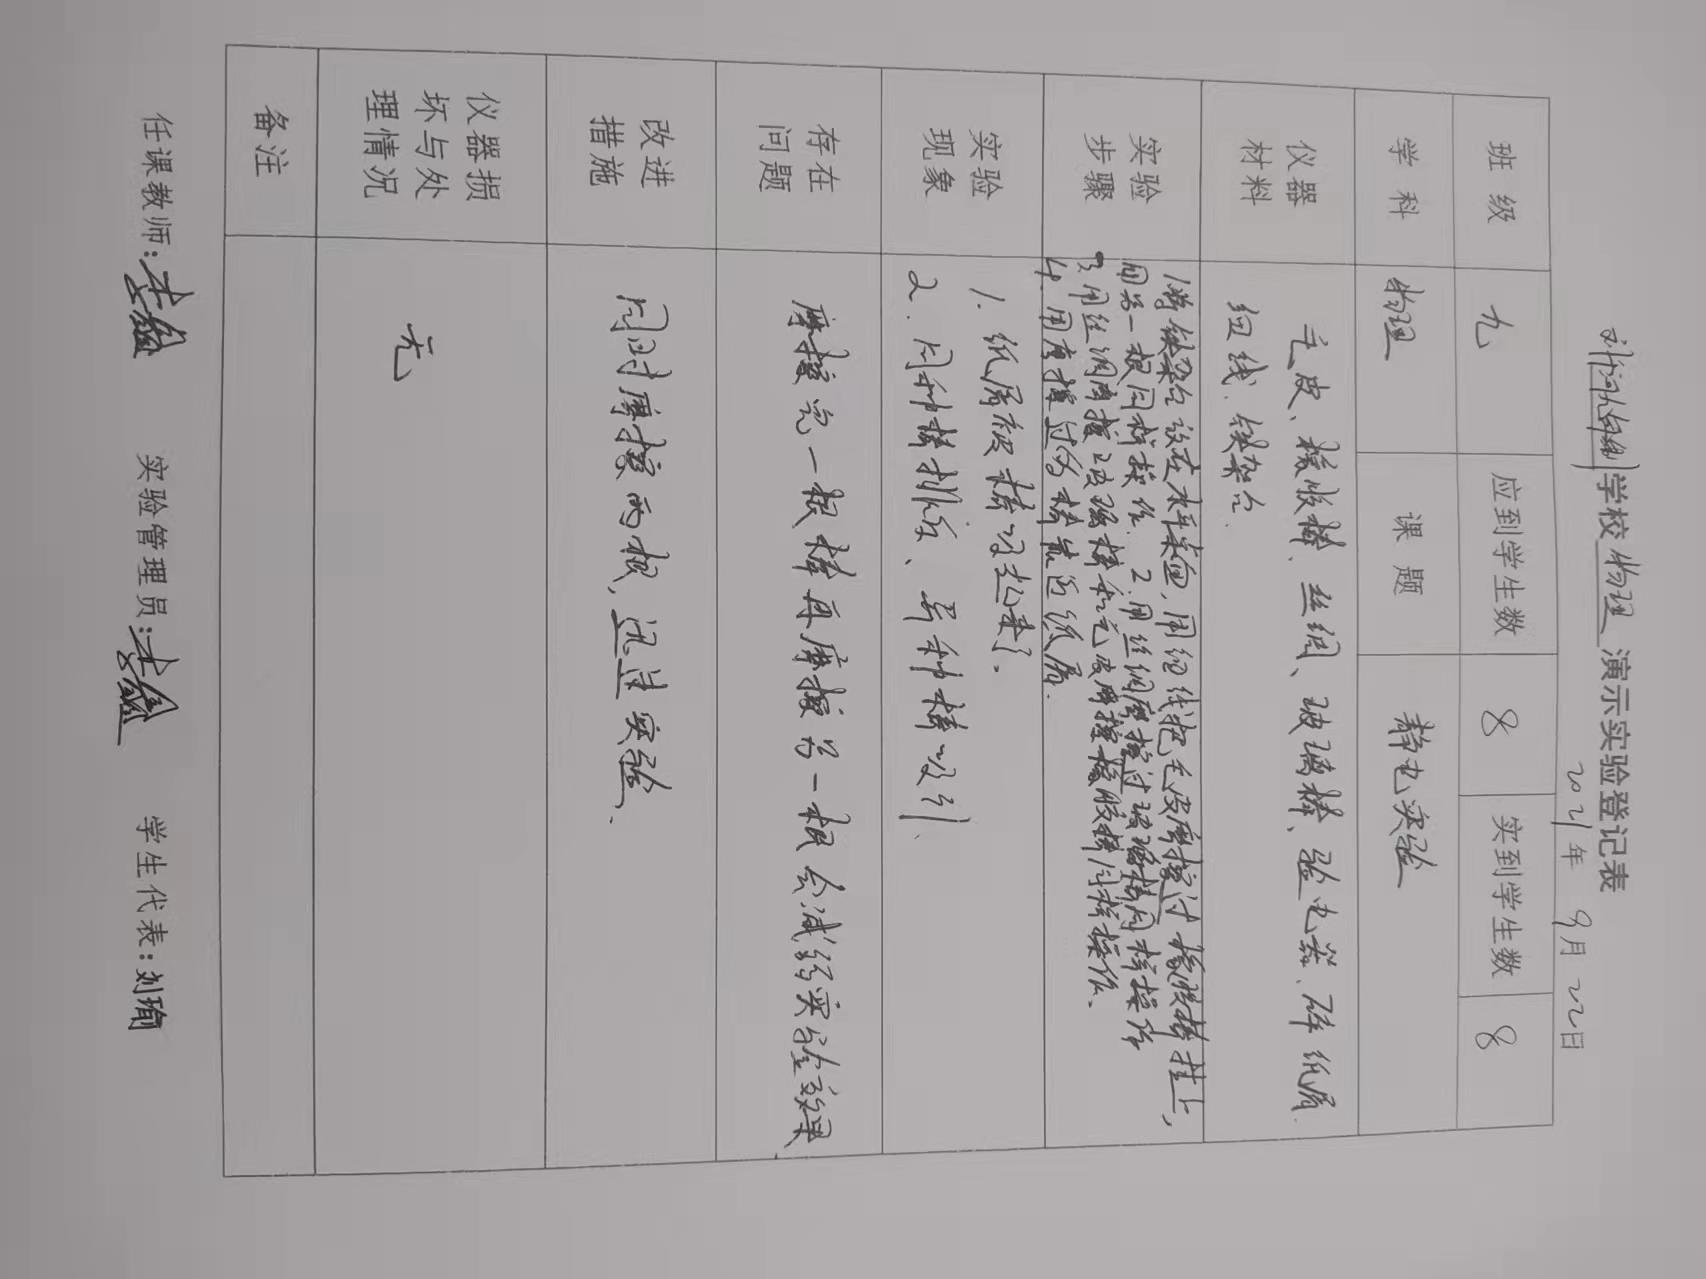 学校 物理 演示实验登记表
2021年 9月 22日
班 级 九 应到学生数 8 实到学生数 8
学 科 物理 课 题 静电实验
仪器
材料
毛皮、橡胶棒、丝绸、玻璃棒、验电器、碎纸屑、
细线、铁架台.
实验
步骤
1.将铁架台放在水平桌面,用细线把毛皮摩擦过橡胶棒挂上,
用另一根同样操作. 2.用丝绸摩擦过玻璃棒同样操作
3.用丝绸摩擦玻璃棒和毛皮摩擦橡胶棒同样操作、
4.用摩擦过的棒靠近纸屑.
实验
现象
1.纸屑被棒吸起来了.
2.同种棒排斥、异种棒吸引、
存在
问题
摩擦完一根棒再摩擦另一根会减弱实验效果
改进
措施
同时摩擦两根,迅速实验、
仪器损
坏与处
理情况
无
备注
任课教师: 李鑫 实验管理员: 李鑫 学生代表: 刘瑜